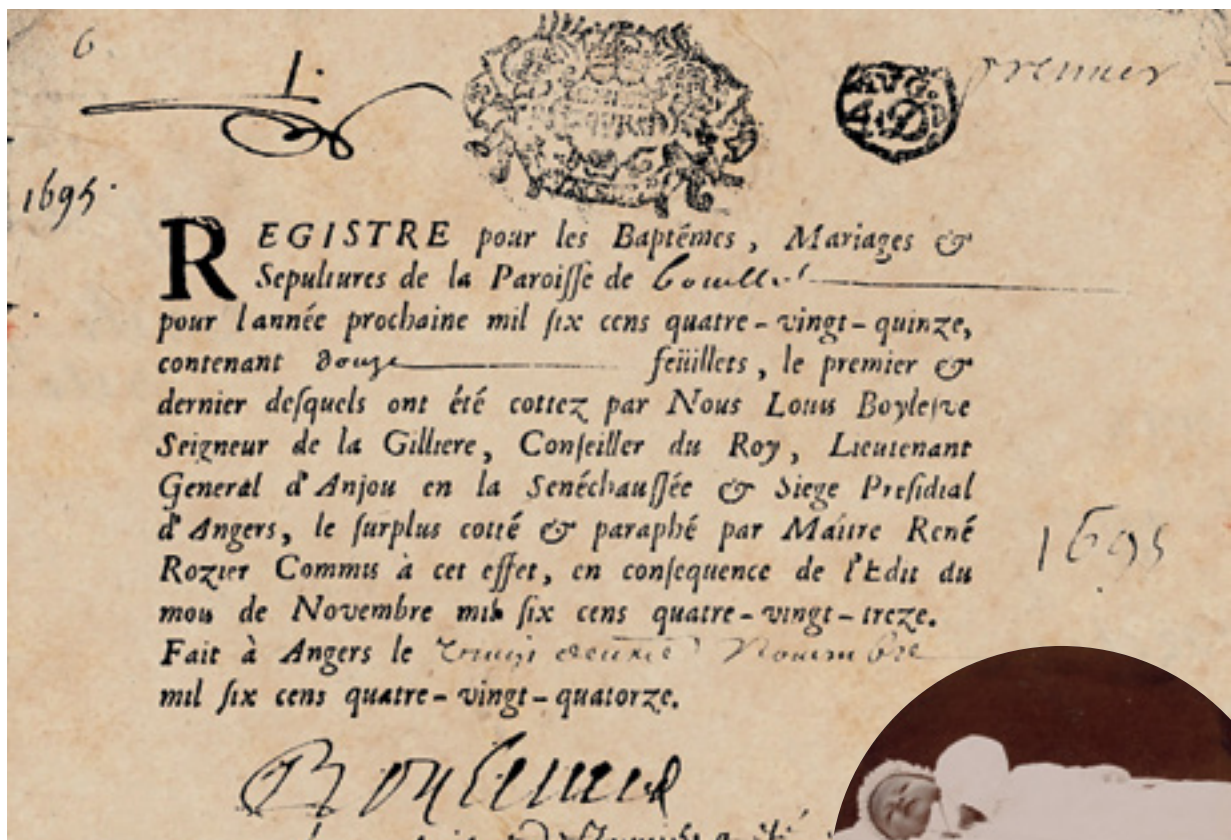 6
1.
premier
AVG.
4.D
1695.
REGISTRE pour les Baptémes, Mariages &
Sepultures de la Paroisse de
pour l'année prochaine mil six cens quatre-vingt-quinze,
contenant douze feüillets, le premier &
dernier desquels ont été cottez par Nous Louis Boylesve
Seigneur de la Gilliere, Conseiller du Roy, Lieutenant
General d'Anjou en la Senéchaussée & Siege Presidial
d'Angers, le surplus cotté & paraphé par Maître René
Rozier Commis à cet effet, en consequence de l'Edit du
mois de Novembre mil six cens quatre-vingt-treze.
1695
Fait à Angers le Novembre
mil six cens quatre-vingt-quatorze.